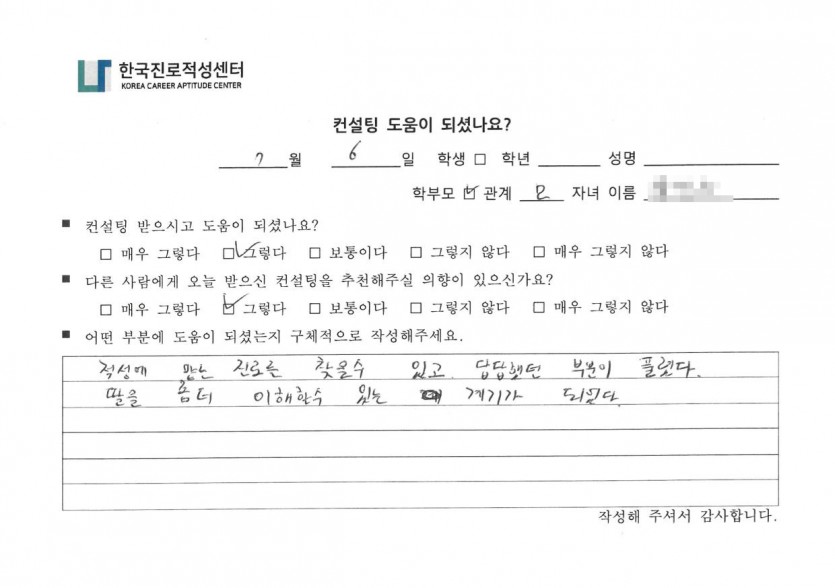 한국진로적성센터
KOREA CAREER APTITUDE CENTER
컨설팅 도움이 되셨나요?
7 월 6 일 학생 □ 학년 성명
학부모 ☑ 관계 모 자녀 이름
■ 컨설팅 받으시고 도움이 되셨나요?
□ 매우 그렇다 ☑ 그렇다 □ 보통이다 □ 그렇지 않다 □ 매우 그렇지 않다
■ 다른 사람에게 오늘 받으신 컨설팅을 추천해주실 의향이 있으신가요?
□ 매우 그렇다 ☑ 그렇다 □ 보통이다 □ 그렇지 않다 □ 매우 그렇지 않다
■ 어떤 부분에 도움이 되셨는지 구체적으로 작성해주세요.
적성에 맞는 진로를 찾을수 있고. 답답했던 부분이 풀렸다.
딸을 좀더 이해할수 있는 계기가 되었다.
작성해 주셔서 감사합니다.